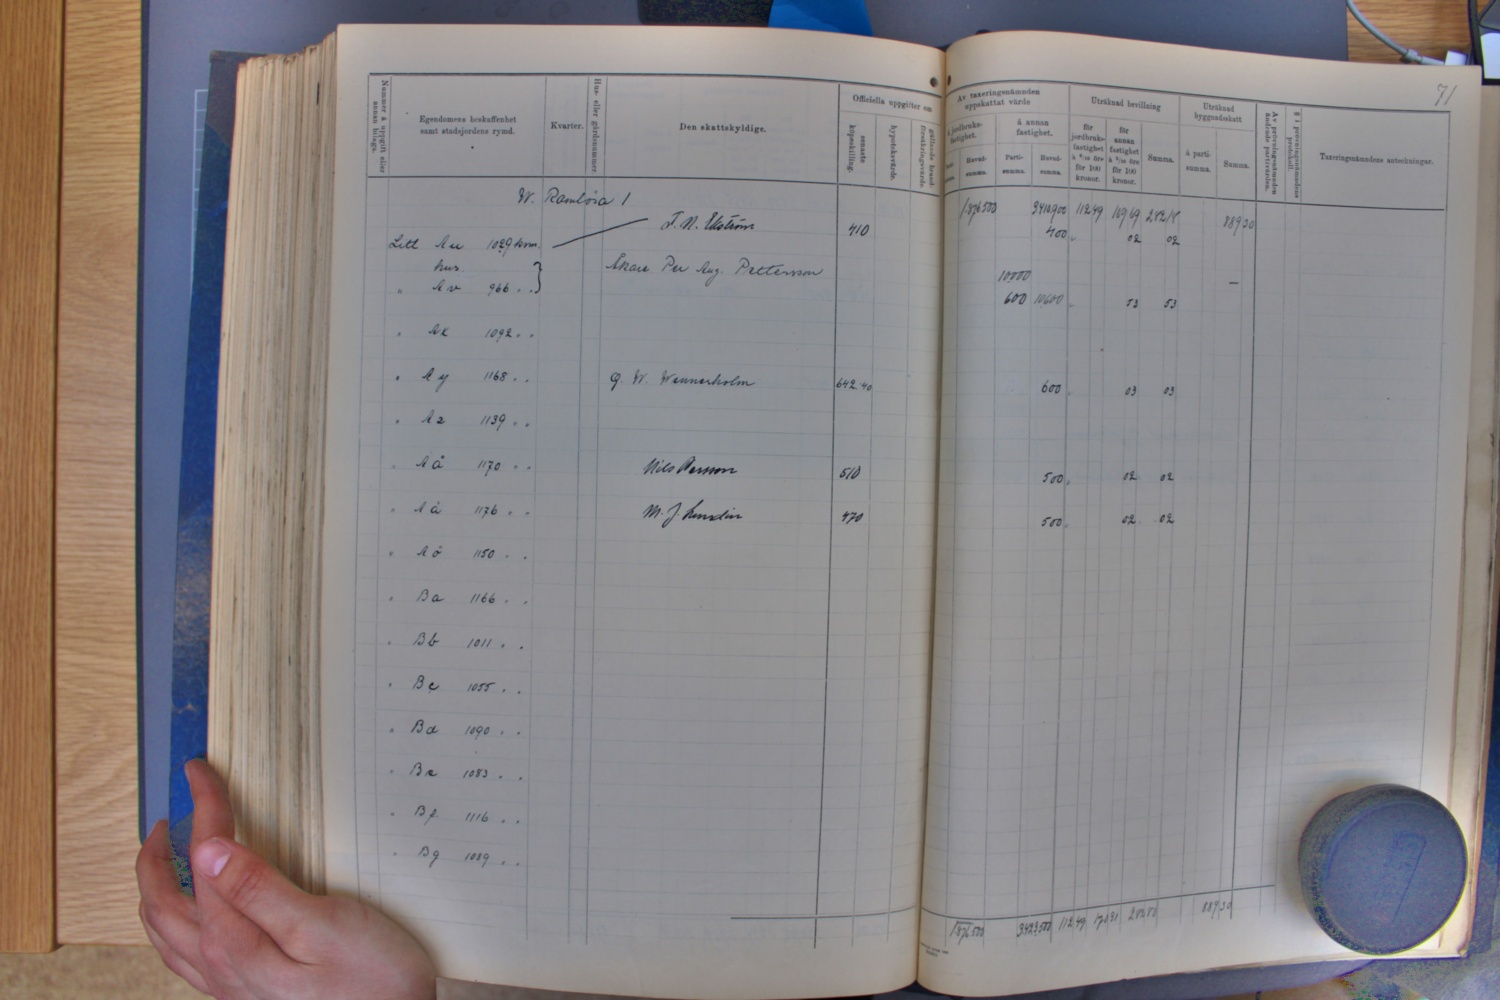 71
Nummer å uppgift eller annan bilaga.
Egendomens beskaffenhet samt stadsjordens rymd.
Kvarter.
Hus- eller gårdsnummer.
Den skattskyldige.
Officiella uppgifter om
senaste köpeskilling.
hypoteksvärde.
gällande brandförsäkringsvärde.
Av taxeringsnämnden uppskattat värde
jordbruksfastighet.
å annan fastighet.
Huvudsumma.
Partisumma.
Huvudsumma.
Uträknad bevillning
för jordbruksfastighet
för 100 kronor.
för annan fastighet
för 100 kronor.
Summa.
Uträknad byggnadsskatt
å partisumma.
Summa.
Av prövningsnämnden ändrade partivärden.
§ i prövningsnämndens protokoll.
Taxeringsnämndens anteckningar.
W. Ramlösa 1
1876500 3410900 11249 16969 28218 88930
Litt Au 1029 kvm. F. N. Ekström 410 400 02 02
hus Åkare Per Aug. Pettersson 10000 —
" Av 966 " " 600 10600 53 53
" Ax 1092 " "
" Ay 1168 " " G. W. Wennerholm 642.40 600 03 03
" Az 1139 " "
" Aå 1170 " " Nils Persson 510 500 02 02
" Aä 1176 " " M. J. Lundin 470 500 02 02
" Aö 1150 " "
" Ba 1166 " "
" Bb 1011 " "
" Bc 1055 " "
" Bd 1090 " "
" Be 1083 " "
" Bf 1116 " "
" Bg 1089 " "
1876500 3423500 11249 88930